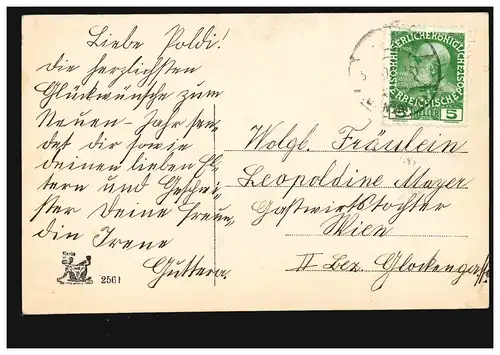 Liebe Poldi!
die herzlichsten
Glückwünsche zum
Neuen-Jahr sen-
det dir sowie
deinen lieben El-
tern und Geschwi-
ster Deine Freun-
din Irene
Guttera.
2561
KAISERLICHEKÖNIGLICHE
ÖSTERREICHISCHE
5 HELLER 5
Wolgl. Fräulein
Leopoldine Mayer
Gastwirtstochter
Wien
II Bez. Glockengasse